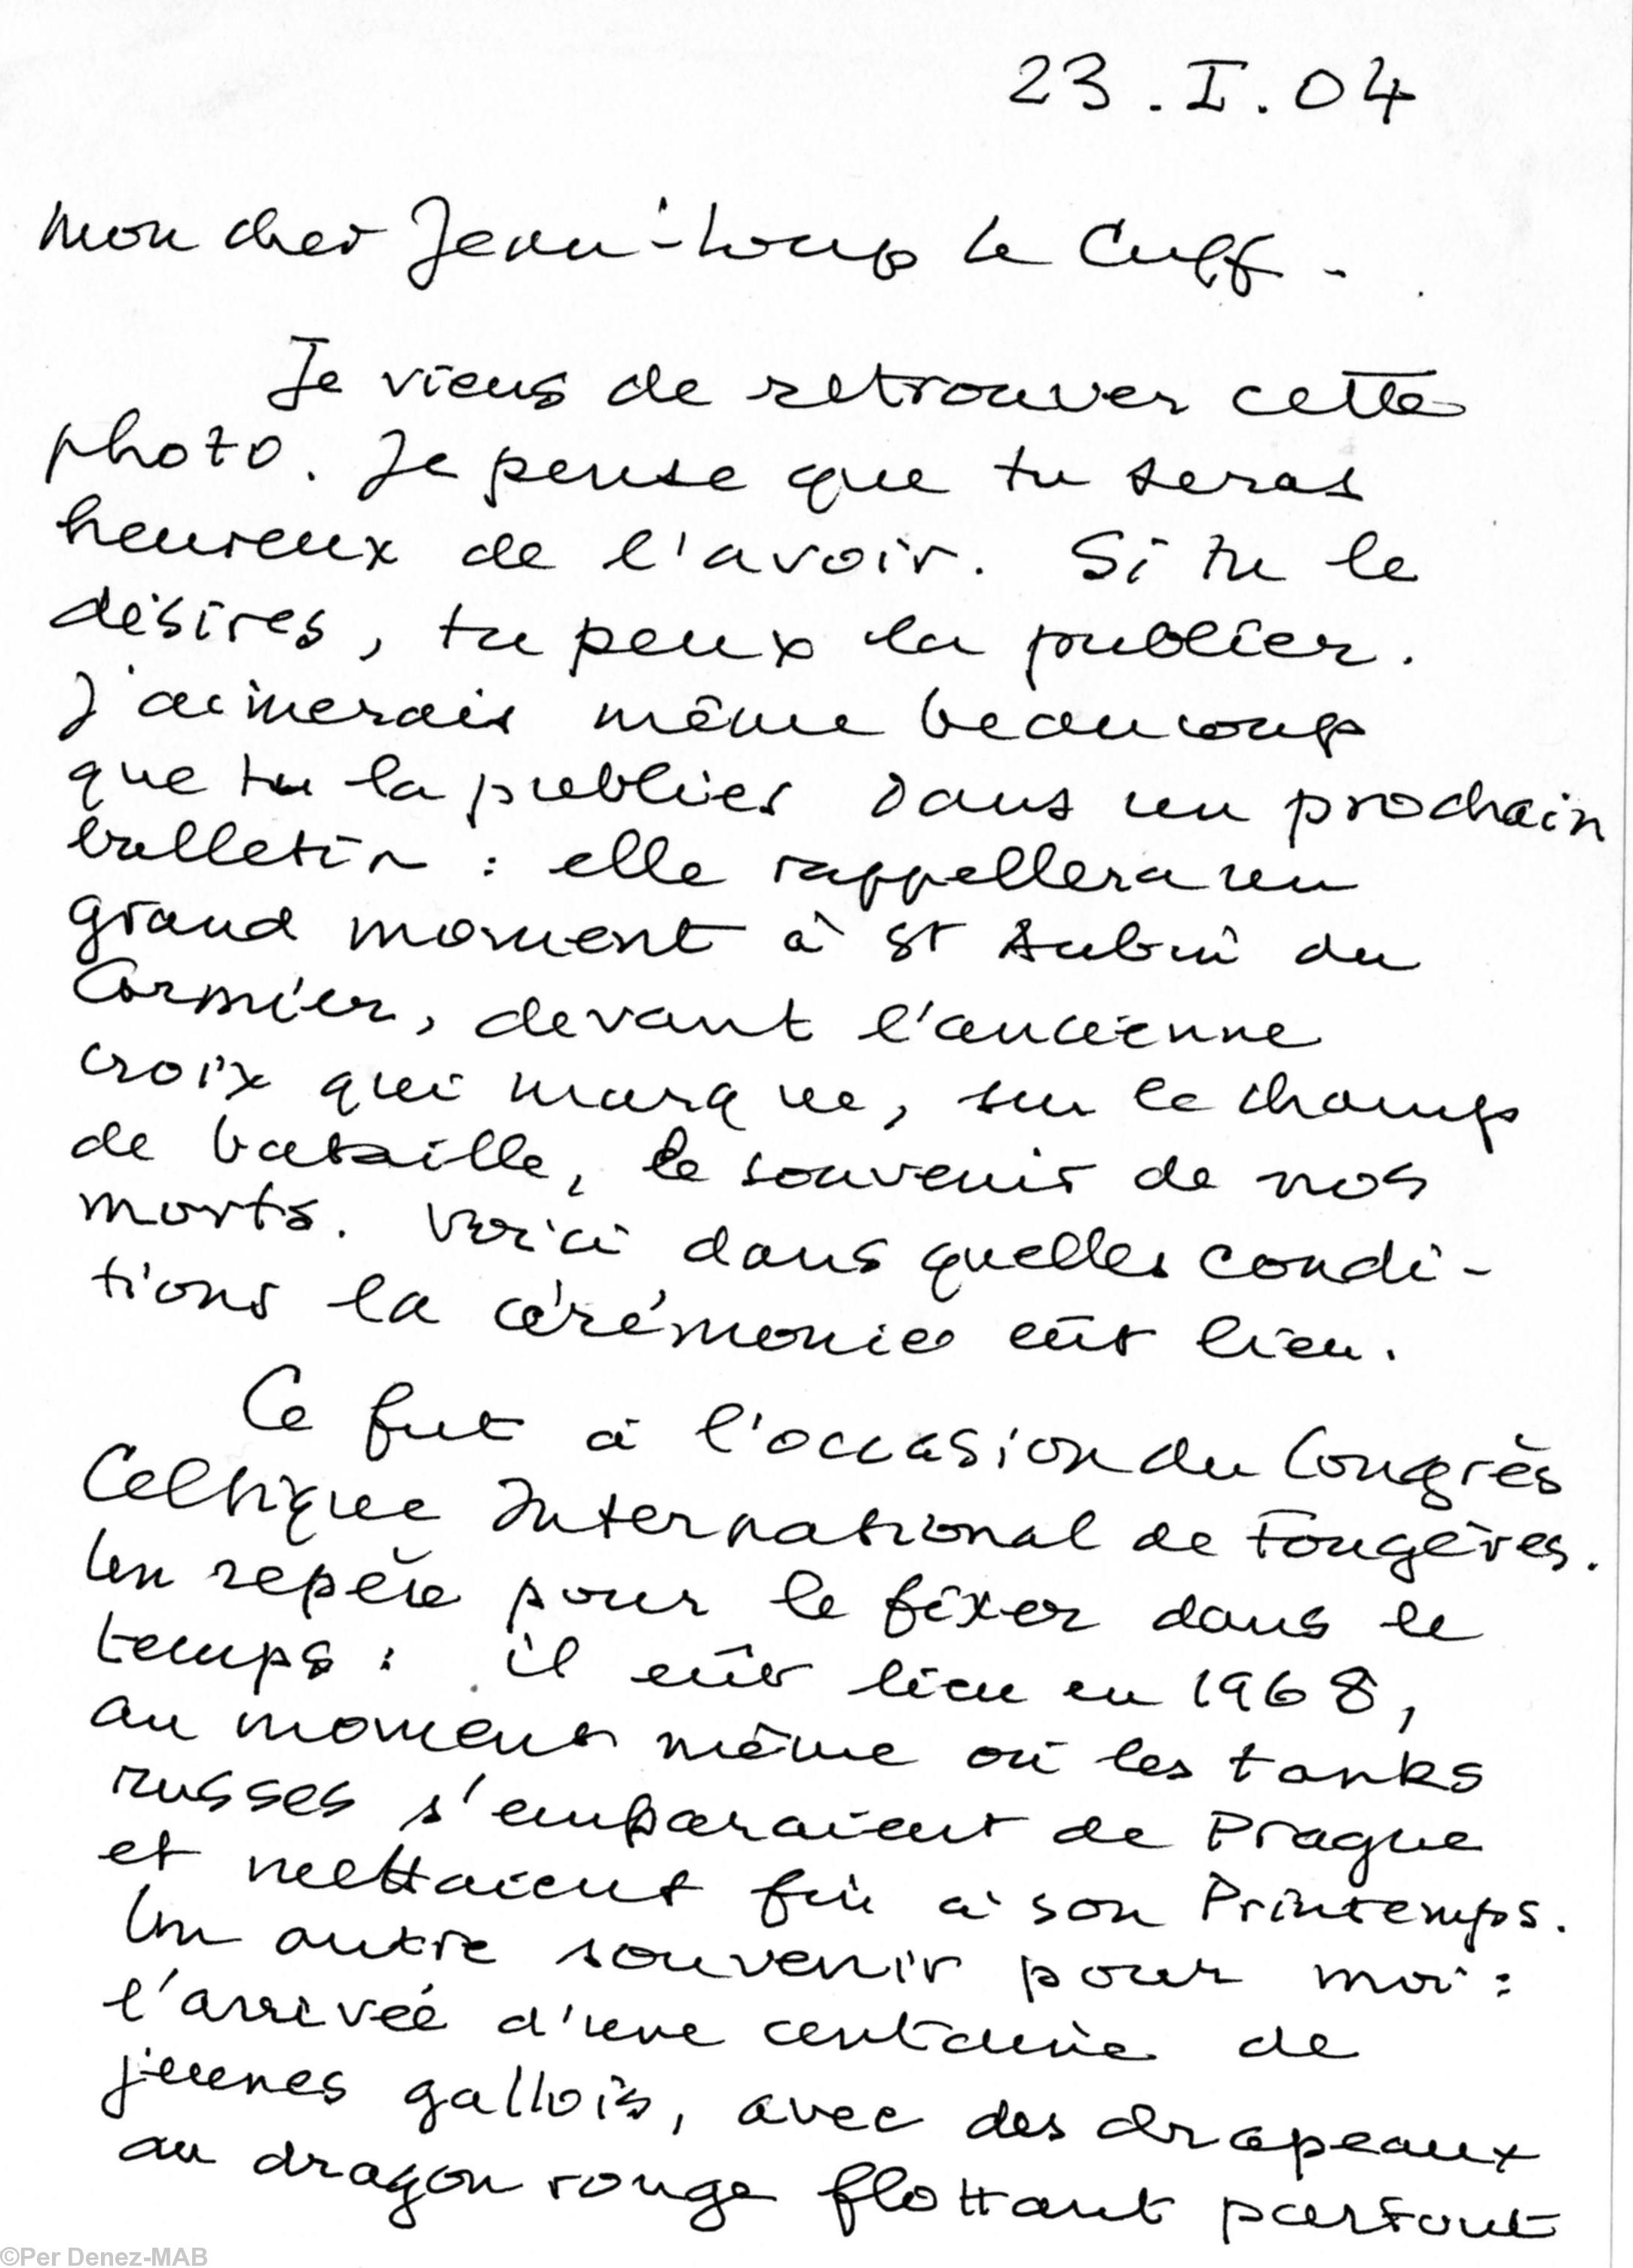 23. I. 04
Mon cher Jean-Loup Le Cuff -
Je viens de retrouver cette
photo. Je pense que tu seras
heureux de l'avoir. Si tu le
désires, tu peux la publier.
J'aimerais même beaucoup
que tu la publies dans un prochain
bulletin : elle rappellera un
grand moment à St Aubin du
Cormier, devant l'ancienne
croix qui marque, sur le champ
de bataille, le souvenir de nos
morts. Voici dans quelles condi-
tions la cérémonie eût lieu.
Ce fut à l'occasion du Congrès
Celtique International de Fougères.
Un repère pour le fixer dans le
temps : il eût lieu en 1968,
au moment même où les tanks
russes s'emparaient de Prague
et mettaient fin à son Printemps.
Un autre souvenir pour moi :
l'arrivée d'une centaine de
jeunes gallois, avec des drapeaux
au dragon rouge flottant partout
©Per Denez-MAB